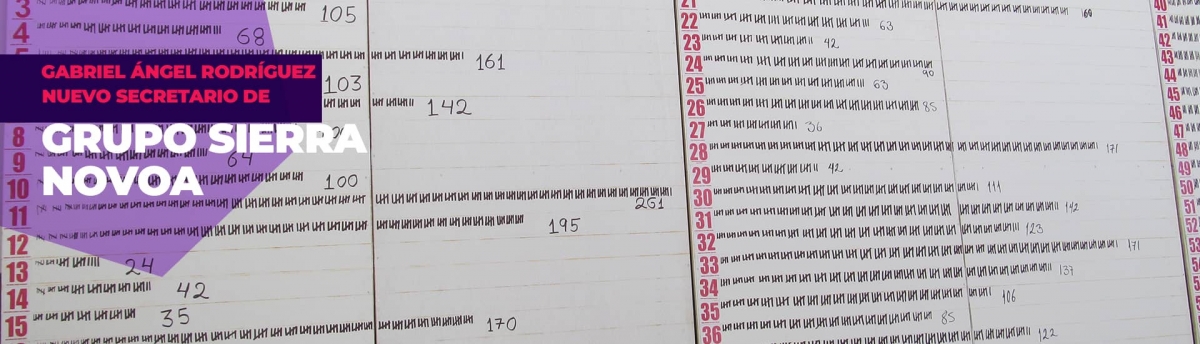 GABRIEL ÁNGEL RODRÍGUEZ
NUEVO SECRETARIO DE
GRUPO SIERRA
NOVOA
3 105
4 68
161
103
142
8
9 64
10 100
11 261
12 195
13 24
14 42
15 35
170
21
22 63
23 42
24 90
25 63
26 85
27 36
28 171
29 42
30 111
31 142
32 123
33 171
34 137
35 106
36 85
122
40
41
42
43
44
45
46
47
48
49
50
51
52
53
54